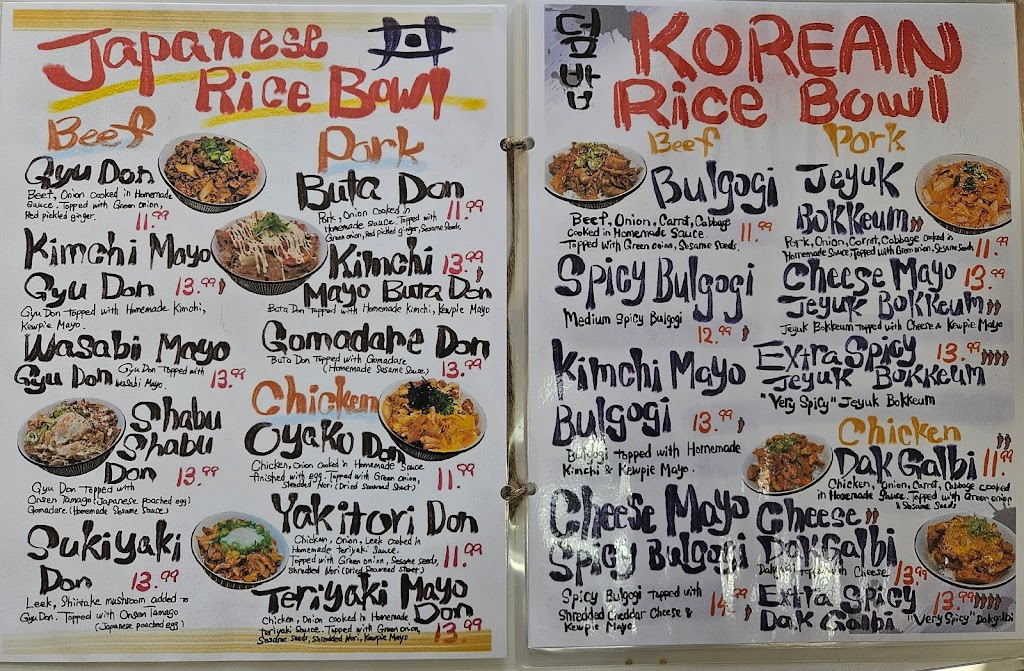 Japanese
Rice Bowl
丼
Beef
Gyu Don
Beef, Onion cooked in Homemade
Sauce. Topped with Green Onion,
Red pickled ginger.
11.99
Kimchi Mayo
Gyu Don 13.99
Gyu Don Topped with Homemade Kimchi,
Kewpie Mayo.
Wasabi Mayo
Gyu Don
Gyu Don Topped with
Wasabi Mayo.
13.99
Shabu
Shabu
Don 13.99
Gyu Don Topped with
Onsen Tamago (Japanese poached egg)
Gomadare (Homemade Sesame Sauce)
Sukiyaki
Don 13.99
Leek, Shiitake mushroom added to
Gyu Don. Topped with Onsen Tamago
(Japanese poached egg)
Pork
Buta Don
Pork, Onion cooked in
Homemade sauce. Topped with
Green onion, Red pickled ginger, Sesame Seeds.
11.99
Kimchi 13.99
Mayo Buta Don
Buta Don Topped with Homemade Kimchi, Kewpie Mayo
Gomadare Don
Buta Don Topped with Gomadare
(Homemade Sesame Sauce)
13.99
Chicken
Oyako Don
Chicken, Onion cooked in Homemade Sauce
finished with egg. Topped with Green onion,
Shredded Nori (Dried Seaweed Sheet)
11.99
Yakitori Don
Chicken, Onion, Leek cooked in
Homemade Teriyaki Sauce.
Topped with Green onion, Sesame seeds,
Shredded Nori (Dried Seaweed Sheet)
11.99
Teriyaki Mayo
Don
Chicken, Onion cooked in Homemade
teriyaki Sauce. Topped with Green onion,
Sesame Seeds, Shredded Nori, Kewpie Mayo
13.99
덮밥
KOREAN
Rice Bowl
Beef
Bulgogi
Beef, Onion, Carrot, Cabbage
cooked in Homemade Sauce.
Topped with Green onion, Sesame Seeds.
11.99
Spicy Bulgogi
Medium Spicy Bulgogi
12.99
Kimchi Mayo
Bulgogi 13.99
Bulgogi topped with Homemade
Kimchi & Kewpie Mayo.
Cheese Mayo
Spicy Bulgogi
Spicy Bulgogi topped with
Shredded Cheddar Cheese &
Kewpie Mayo
14.99
Pork
Jeyuk
Bokkeum
Pork, Onion, Carrot, Cabbage cooked in
Homemade Sauce, Topped with Green onion, Sesame Seeds
11.99
Cheese Mayo 13.99
Jeyuk Bokkeum
Jeyuk Bokkeum topped with Cheese & Kewpie Mayo
Extra Spicy 13.99
Jeyuk Bokkeum
"Very Spicy" Jeyuk Bokkeum
Chicken
Dak Galbi 11.99
Chicken, Onion, Carrot, Cabbage cooked
in Homemade Sauce. Topped with Green onion
& Sesame Seeds
Cheese
Dak Galbi
Dakgalbi topped with Cheese
13.99
Extra Spicy 13.99
Dak Galbi
"Very Spicy" Dakgalbi